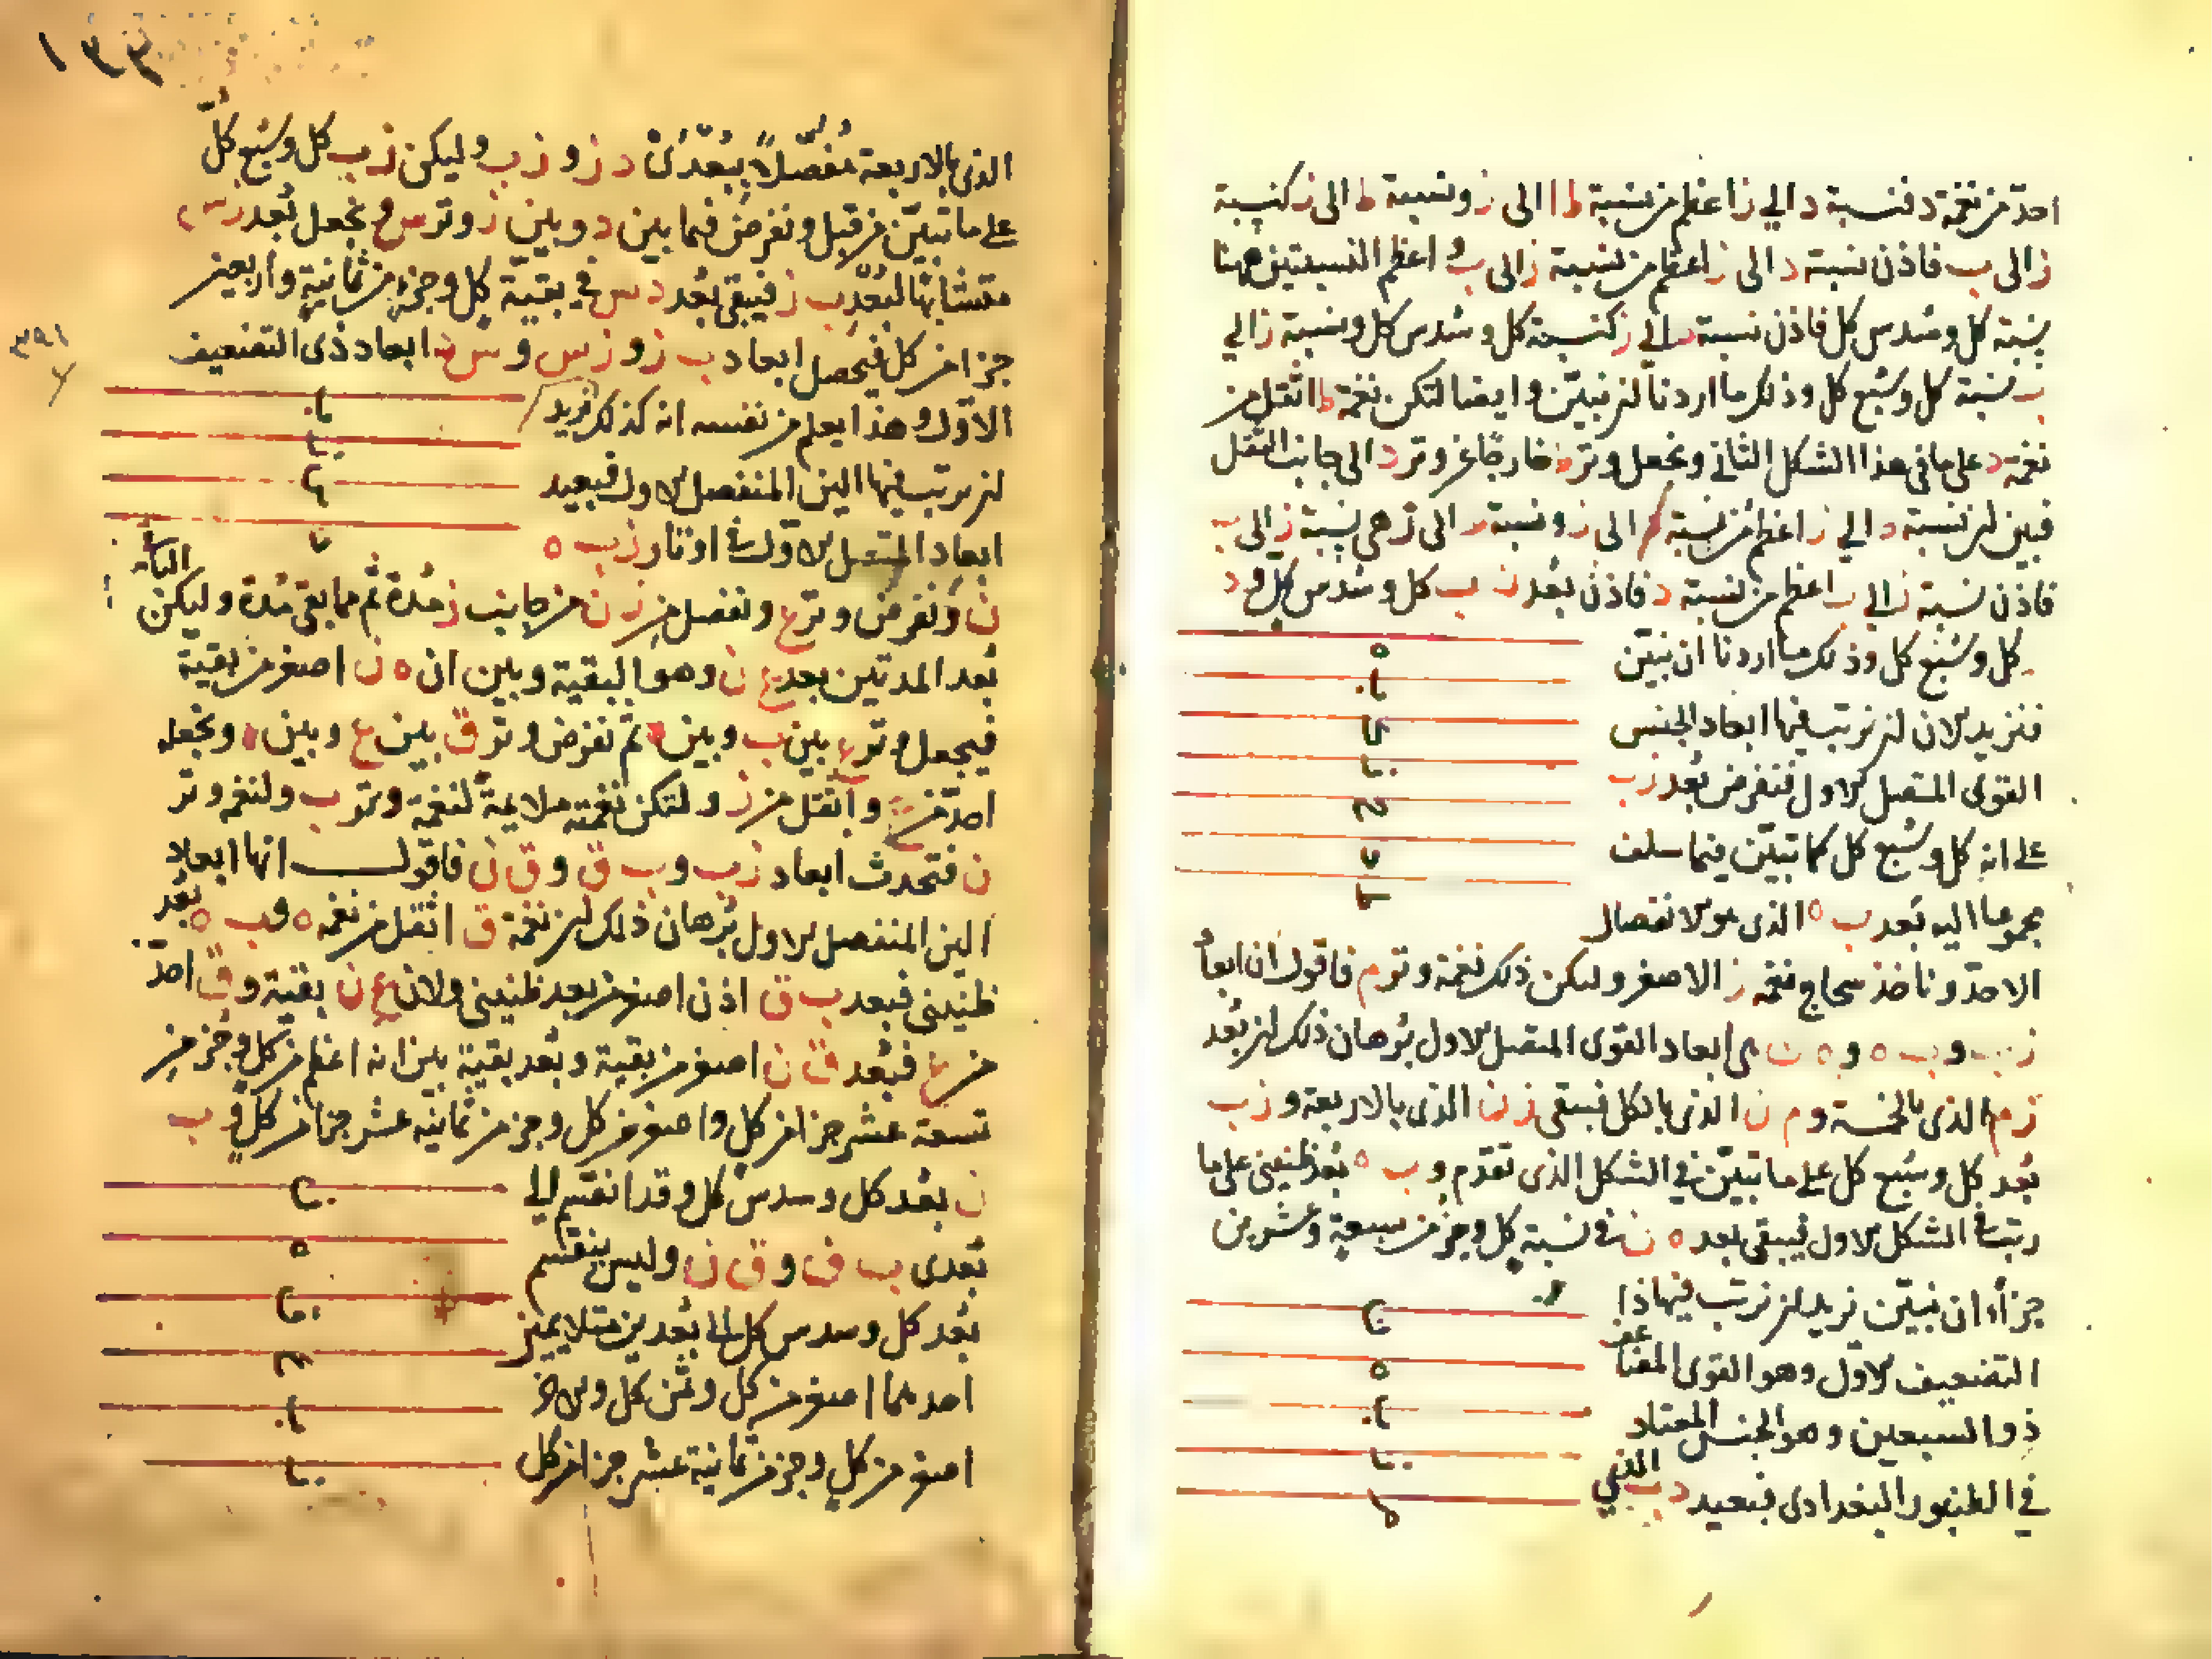 احدّ من نغمة د فنسبة د الي ز اعظم من نسبة ط الى ز ونسبة ط الى ز كنسبة
ز الى ب فاذن نسبة د الى ز اعظم من نسبة ز الى ب و اعظم النسبتين ههنا
نسبة كل وسُدس كل فاذن نسبة د الي ز كنسبة كل وسُدس كل ونسبة ز الي
ب نسبة كل وسُبع كل وذلك ما اردنا ان نبيّن وايضا لتكن نغمة ط اثقل من
نغمة د على ما في هذا الشكل الثاني ونجعل وتر ط خارجًا عن وتر د الى جانب الثقل
فبين ان نسبة د الي ز اعظم من نسبة الى ز ونسبة الى ز هي نسبة ز الى ب
فاذن نسبة ز الي ب اعظم من نسبة د فاذن بُعد ز ب كل وسُدس كل و د
كل وسُبع كل وذلك ما اردنا ان نبيّن
فنريد الان ان نرتب فيها ابعاد الجنس
القوى المتصل الاول فنفرض بُعد ز ب
على انه كل وسُبع كل كما تبيّن فيما سلف
مجموعا اليه بُعد ب ه الذى هو الانفصال
الاحدّ وناخذ سجاح نغمة ز الاصغر وليكن ذلك نغمة وتر م فاقول ان ابعاد
ز ب و ب ه و ه ن هى ابعاد القوى المتصل الاول برهان ذلك ان بُعد
ز م الذى بالخمسة و م ن الذى بالكل فيبقى ز ن الذى بالاربعة و ز ب
بُعد كل وسُبع كل على ما تبيّن في الشكل الذى تقدم و ب ه بُعد طنينى على ما
رتب في الشكل الاول فيبقى بعد ه ن في نسبة كل وجزء من سبعة وعشرين
جزأ ان نبيّن نريد ان نرتب فيها ذا
التضعيف الاوّل وهو القوى المضاعف
ذو السبعين وهو الجنس المعتاد
في الطنبور البغدادى فبعيد د ب الذي
ه
ح
ط
ح
ه
الذى بالاربعة مُفصّلاً ببُعدَىْ د ز و ز ب وليكن ز ب كل وسُبع كل
على ما تبيّن من قبل ونفرض فيما بين د وبين ز وتر س ونجعل بُعد ز س
متشابها لبُعد ب ز فيبقى بُعد د س في بقية كل وجزء من ثمانية واربعين
جزا من كل فيحصل ابعاد ب ز و ز س و س د ابعاد ذى التضعيف
الاوّل وهذا يعلم من نفسه انه كذلك نريد
ان نرتب فيها الين المنفصل الاول فبعيد
ابعاد المتصل الاوّل في اوتار ز ب ه
ن ونفرض وتر ع ونفصل من ز ن من جانب ز مُدة ثم مما بقى مُدة وليكن الباقي
بُعد المدتين بعد ع ن وهو البقية وبين ان ه ن اصغر من بقية
فيجعل وتر ع بين ب وبين ه ثم نفرض وتر ق بين ع وبين ه ونجعله
احدّ من ع واثقل من ز ولتكن نغمته ملايمةً لنغمة وتر ب ولنغمة وتر
ن فتحدث ابعاد ز ب و ب ق و ق ن فاقول انها ابعاد
الين المنفصل الاول برهان ذلك ان نغمة ق اثقل من نغمة ه و ب ه بُعد
طنينى فبعد ب ق اذن اصغر من بعد طنينى ولان ع ن بقية و ق احدّ
من ع فبُعد ق ن اصغر من بقية وبُعد بقية بين انه اعظم من كل وجزء من
تسعة عشر جزا من كل واصغر من كل وجزء من ثمانية عشر جزا من كل و ب
ن بعُد كل وسدس كل وقد انقسم الي
بُعدى ب ق و ق ن وليس ينقسم
بُعد كل وسدس كل الى بُعدين متلايمين
احدهما اصغر من كل وثمن كل والاخر
اصغر من كل وجزء من ثمانية عشر جزا من كل
ح
ه
ع